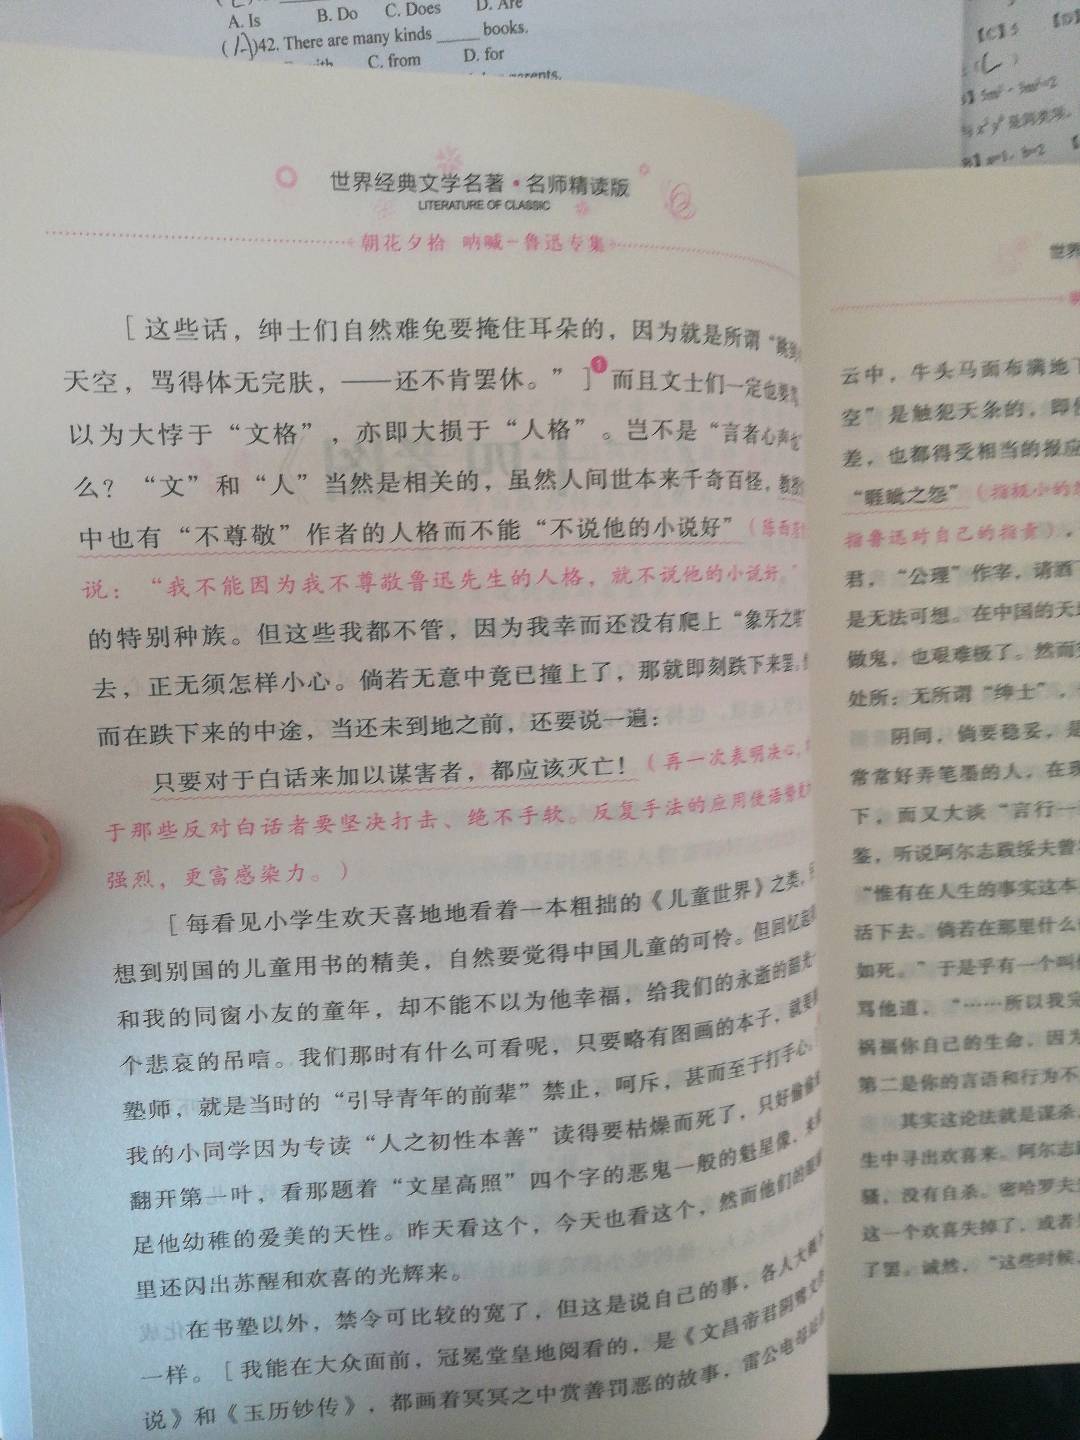 A. Is B. Do C. Does D. Are
42. There are many kinds _____ books.
with C. from D. for
parents.
【C】5 【D】
世界经典文学名著·名师精读版
LITERATURE OF CLASSIC
朝花夕拾 呐喊-鲁迅专集
[这些话，绅士们自然难免要掩住耳朵的，因为就是所谓“跳到
天空，骂得体无完肤，——还不肯罢休。”]1而且文士们一定也要骂，
以为大悖于“文格”，亦即大损于“人格”。岂不是“言者心声也”
么？“文”和“人”当然是相关的，虽然人间世本来千奇百怪，教授
中也有“不尊敬”作者的人格而不能“不说他的小说好”（陈西滢
说：“我不能因为我不尊敬鲁迅先生的人格，就不说他的小说好。”
的特别种族。但这些我都不管，因为我幸而还没有爬上“象牙之塔”
去，正无须怎样小心。倘若无意中竟已撞上了，那就即刻跌下来罢。
而在跌下来的中途，当还未到地之前，还要说一遍：
只要对于白话来加以谋害者，都应该灭亡！（再一次表明决心，
于那些反对白话者要坚决打击、绝不手软。反复手法的应用使语势更
强烈，更富感染力。）
[每看见小学生欢天喜地地看着一本粗拙的《儿童世界》之类，
想到别国的儿童用书的精美，自然要觉得中国儿童的可怜。但回忆起
和我的同窗小友的童年，却不能不以为他幸福，给我们的永逝的韶光
个悲哀的吊唁。我们那时有什么可看呢，只要略有图画的本子，就要
塾师，就是当时的“引导青年的前辈”禁止，呵斥，甚而至于打手心。
我的小同学因为专读“人之初性本善”读得要枯燥而死了，只好偷偷
翻开第一叶，看那题着“文星高照”四个字的恶鬼一般的魁星像，来
足他幼稚的爱美的天性。昨天看这个，今天也看这个，然而他们的眼
里还闪出苏醒和欢喜的光辉来。
在书塾以外，禁令可比较的宽了，但这是说自己的事，各人大概
一样。[我能在大众面前，冠冕堂皇地阅看的，是《文昌帝君阴骘文
说》和《玉历钞传》，都画着冥冥之中赏善罚恶的故事，雷公电母
世界
云中，牛头马面布满地下
空”是触犯天条的，即使
差，也都得受相当的报应
“睚眦之怨”（指极小的
指鲁迅对自己的指责），
君，“公理”作宰，请酒
是无法可想。在中国的天
做鬼，也艰难极了。然而
处所：无所谓“绅士”，
阴间，倘要稳妥，是
常常好弄笔墨的人，在现
下，而又大谈“言行一
鉴，听说阿尔志跋绥夫曾
“惟有在人生的事实这本
活下去。倘若在那里什么
如死。”于是乎有一个叫
骂他道，“……所以我完
祸福你自己的生命，因为
第二是你的言语和行为不
其实这论法就是谋杀，
生中寻出欢喜来。阿尔志
骚，没有自杀。密哈罗夫
这一个欢喜失掉了，或者
了罢。诚然，“这些时候，